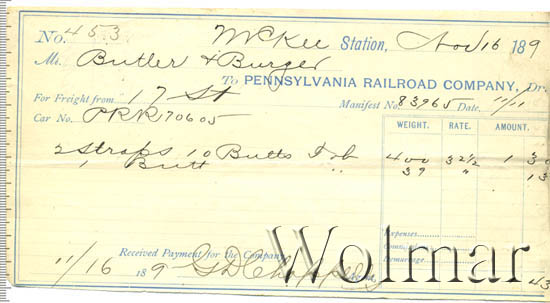 No. 453 McKee Station, Nov 16 189
Mr Butler & Burger
To PENNSYLVANIA RAILROAD COMPANY, Dr.
For Freight from 17 St Manifest No. 83965 Date, 11/11
Car No. PRR 70605
WEIGHT. RATE. AMOUNT.
2 Straps 10 Butts Tob 400 32½ 1 30
1 Butt " 39 " 13
Expenses
Demurrage
Received Payment for the Company,
11/16 189 43
Wolmar